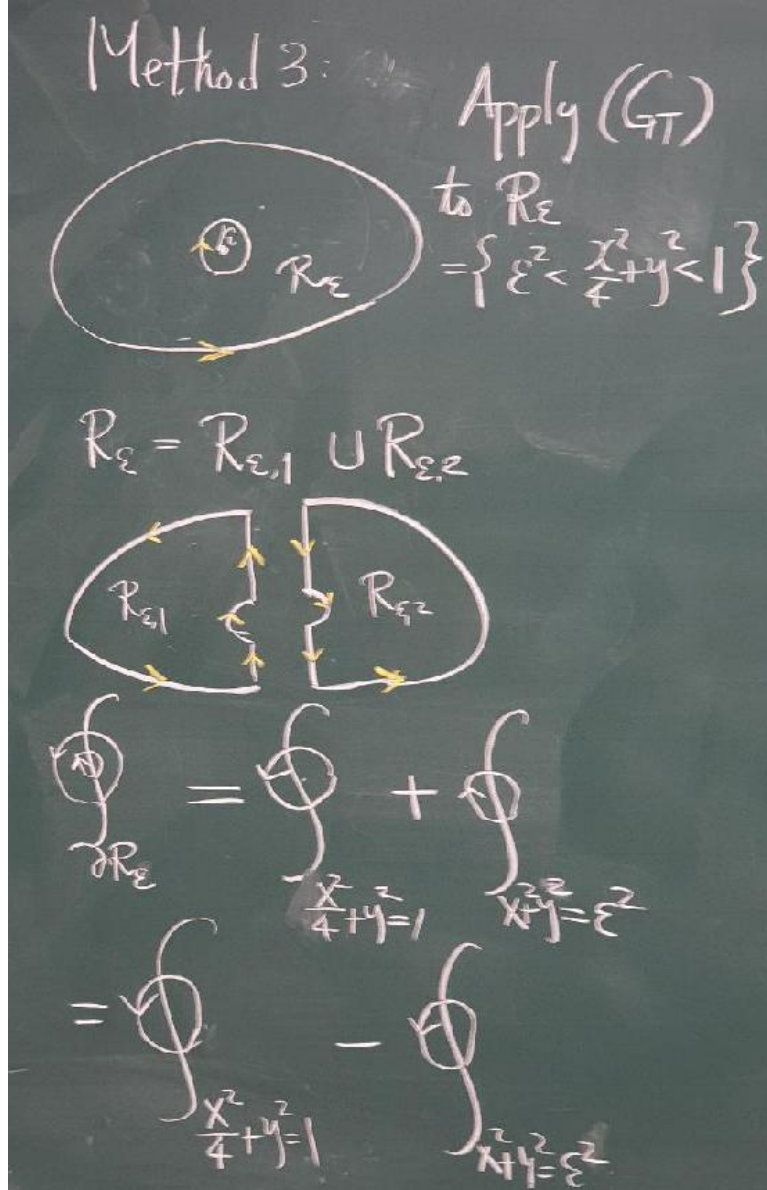 Method 3:
Apply (GT)
to Rε
= { ε² < x²/4 + y² < 1 }
Rε
Rε = Rε,1 ∪ Rε,2
Rε,1
Rε,2
∮_∂Rε = ∮_{x²/4 + y² = 1} + ∮_{x² + y² = ε²}
= ∮_{x²/4 + y² = 1} − ∮_{x² + y² = ε²}